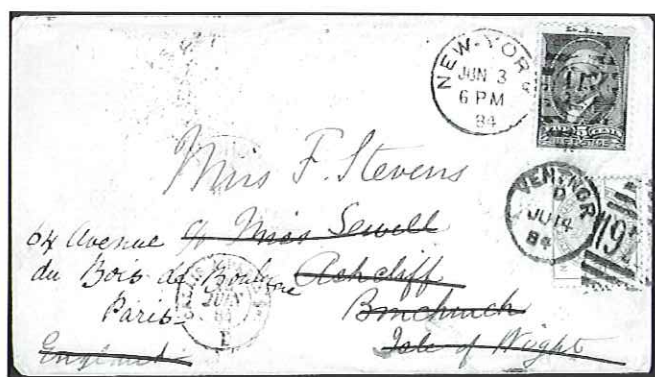 NEW-YORK
JUN 3
6 PM
84
Miss F. Stevens
VENTNOR
D
JU 14
84
64 Avenue c/o Miss Sewell
du Bois de Boulogne Ashcliff
Paris Bonchurch
England Isle of Wight
JUIN
84
E